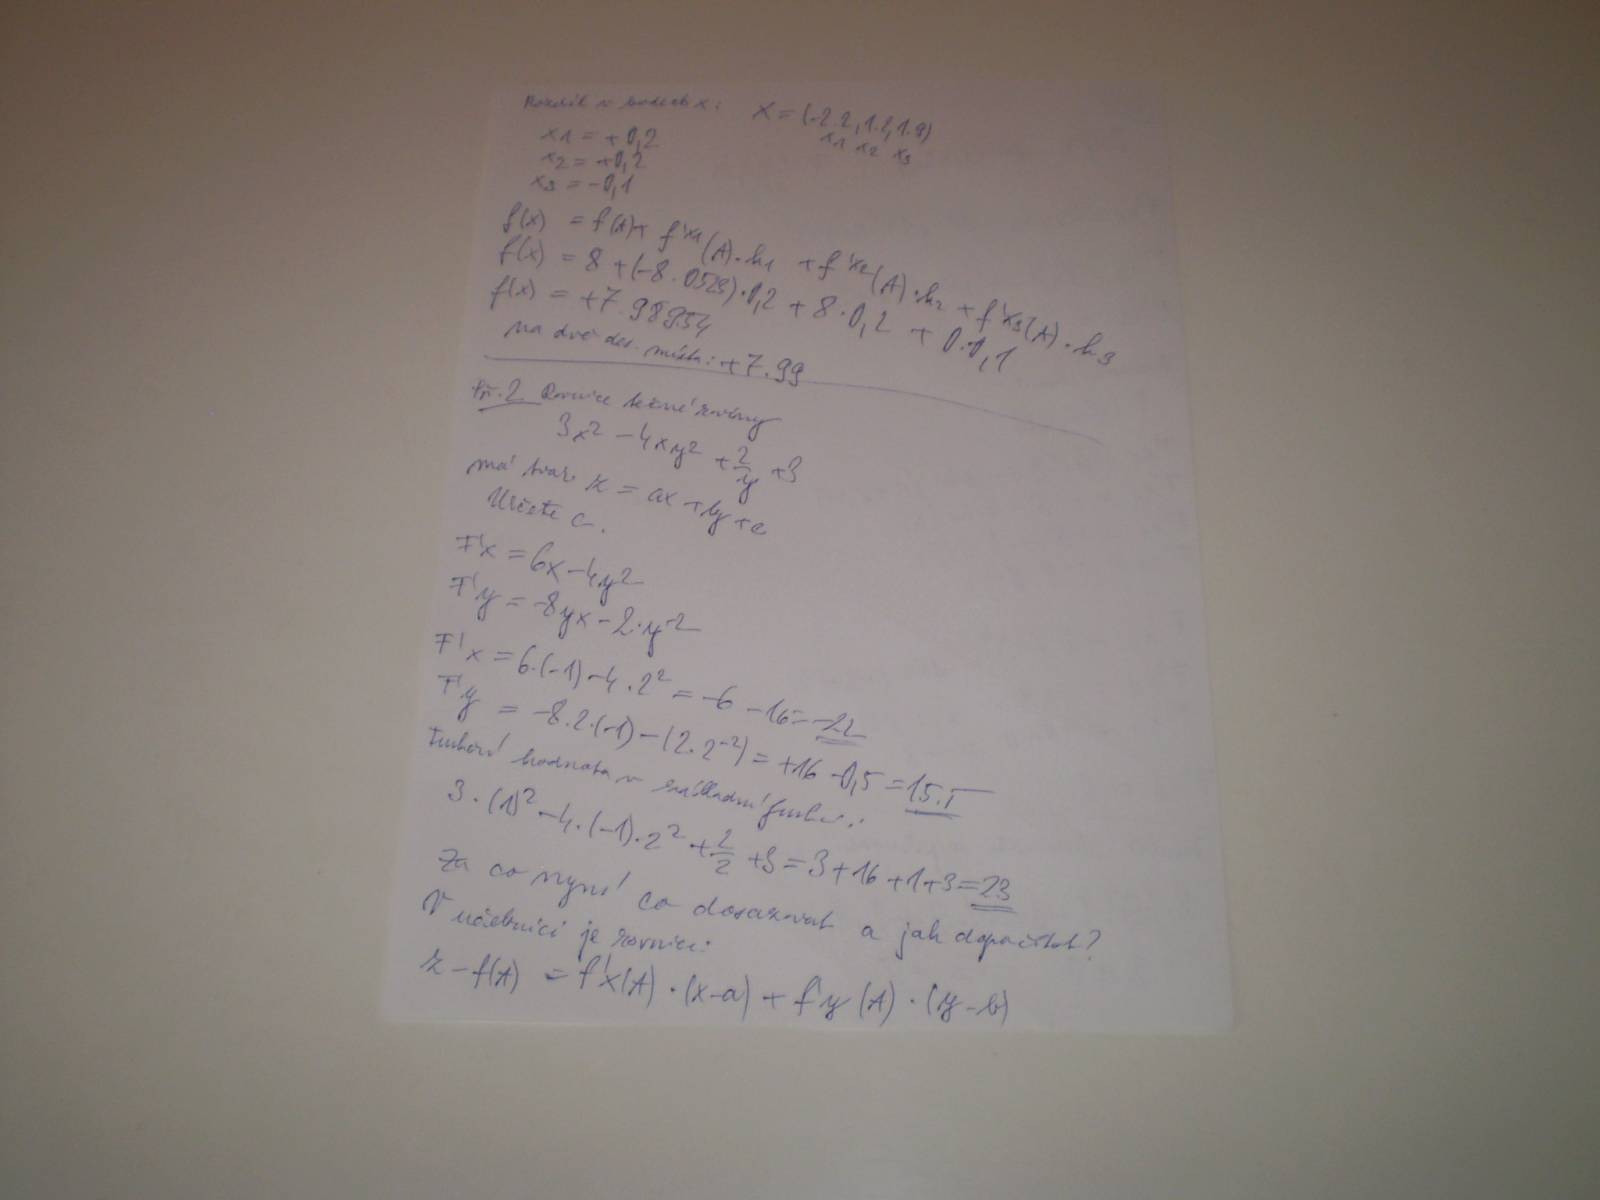 Rozdíl v bodech x: X = (-2.2, 1.2, 1.9)
x1 x2 x3
x1 = +0,2
x2 = +0,2
x3 = -0,1
f(x) = f(A) + f'x1(A)·h1 + f'x2(A)·h2 + f'x3(A)·h3
f(x) = 8 + (-8.0523)·0,2 + 8·0,2 + 0·0,1
f(x) = +7.98954
na dvě des. místa: +7.99
Př.2 Rovnice tečné roviny
3x² - 4xy² + 2/y + 3
má tvar z = ax + by + c
Určete c.
F'x = 6x - 4y²
F'y = -8yx - 2·y⁻²
F'x = 6·(-1) - 4·2² = -6 - 16 = -22
F'y = -8·2·(-1) - (2·2⁻²) = +16 - 0,5 = 15.5
Funkční hodnota v základní funkci:
3·(1)² - 4·(-1)·2² + 2/2 + 3 = 3 + 16 + 1 + 3 = 23
Za co nyní co dosazovat a jak dopočítat?
V učebnici je rovnice:
z - f(A) = f'x(A)·(x-a) + f'y(A)·(y-b)